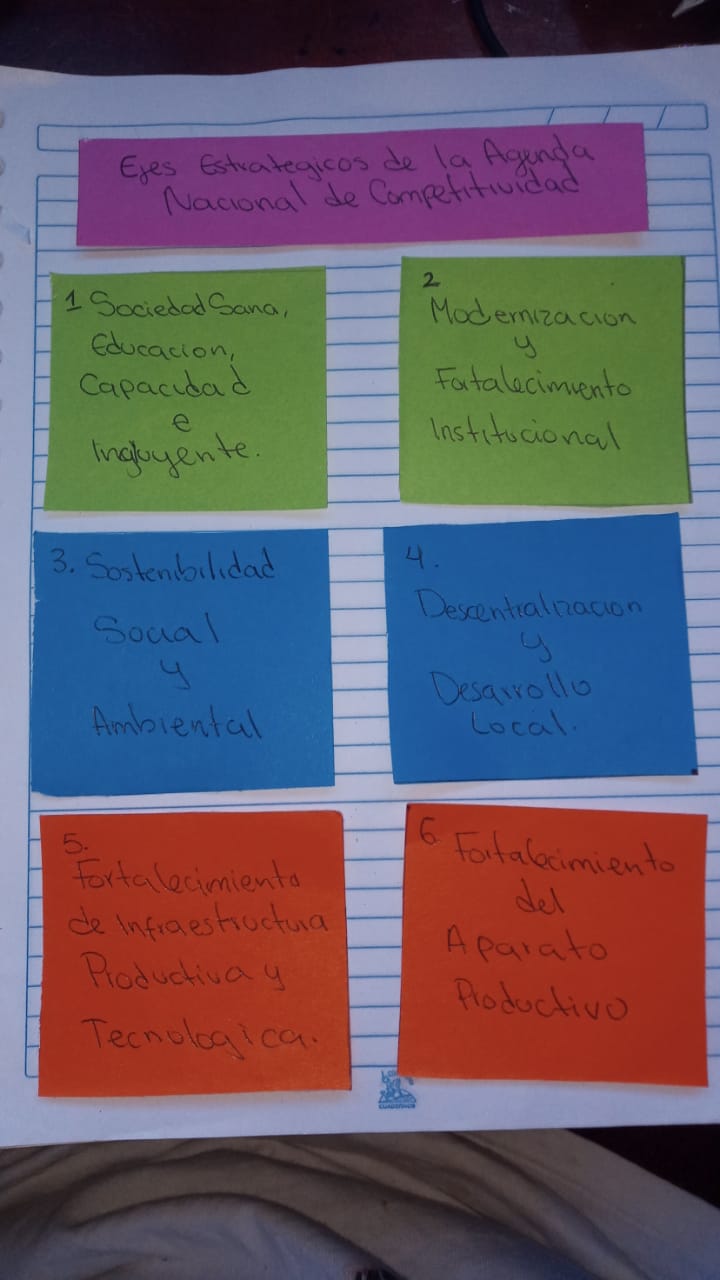 Ejes Estrategicos de la Agenda
Nacional de Competitividad
1 Sociedad Sana,
Educacion,
Capacidad
e
Incluyente.
2
Modernizacion
y
Fortalecimiento
Institucional
3. Sostenibilidad
Social
y
Ambiental
4.
Descentralizacion
y
Desarrollo
Local.
5.
Fortalecimiento
de Infraestructura
Productiva y
Tecnologica.
6 Fortalecimiento
del
Aparato
Productivo
CUADERNOS